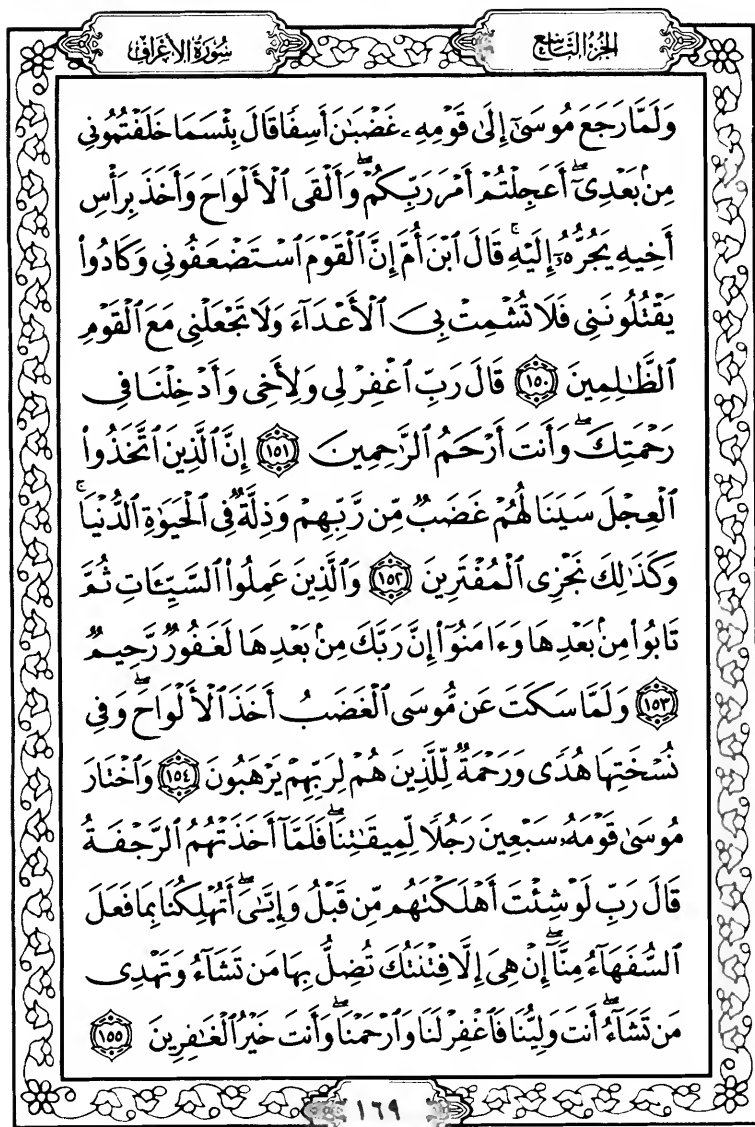 الجزء التاسع
سورة الأعراف
وَلَمَّا رَجَعَ مُوسَىٰٓ إِلَىٰ قَوْمِهِۦ غَضْبَٰنَ أَسِفًا قَالَ بِئْسَمَا خَلَفْتُمُونِى
مِنۢ بَعْدِىٓۖ أَعَجِلْتُمْ أَمْرَ رَبِّكُمْۖ وَأَلْقَى ٱلْأَلْوَاحَ وَأَخَذَ بِرَأْسِ
أَخِيهِ يَجُرُّهُۥٓ إِلَيْهِۚ قَالَ ٱبْنَ أُمَّ إِنَّ ٱلْقَوْمَ ٱسْتَضْعَفُونِى وَكَادُوا۟
يَقْتُلُونَنِى فَلَا تُشْمِتْ بِىَ ٱلْأَعْدَآءَ وَلَا تَجْعَلْنِى مَعَ ٱلْقَوْمِ
ٱلظَّٰلِمِينَ ١٥٠ قَالَ رَبِّ ٱغْفِرْ لِى وَلِأَخِى وَأَدْخِلْنَا فِى
رَحْمَتِكَۖ وَأَنتَ أَرْحَمُ ٱلرَّٰحِمِينَ ١٥١ إِنَّ ٱلَّذِينَ ٱتَّخَذُوا۟
ٱلْعِجْلَ سَيَنَالُهُمْ غَضَبٌ مِّن رَّبِّهِمْ وَذِلَّةٌ فِى ٱلْحَيَوٰةِ ٱلدُّنْيَاۚ
وَكَذَٰلِكَ نَجْزِى ٱلْمُفْتَرِينَ ١٥٢ وَٱلَّذِينَ عَمِلُوا۟ ٱلسَّيِّـَٔاتِ ثُمَّ
تَابُوا۟ مِنۢ بَعْدِهَا وَءَامَنُوٓا۟ إِنَّ رَبَّكَ مِنۢ بَعْدِهَا لَغَفُورٌ رَّحِيمٌ
١٥٣ وَلَمَّا سَكَتَ عَن مُّوسَى ٱلْغَضَبُ أَخَذَ ٱلْأَلْوَاحَۖ وَفِى
نُسْخَتِهَا هُدًى وَرَحْمَةٌ لِّلَّذِينَ هُمْ لِرَبِّهِمْ يَرْهَبُونَ ١٥٤ وَٱخْتَارَ
مُوسَىٰ قَوْمَهُۥ سَبْعِينَ رَجُلًا لِّمِيقَٰتِنَاۖ فَلَمَّآ أَخَذَتْهُمُ ٱلرَّجْفَةُ
قَالَ رَبِّ لَوْ شِئْتَ أَهْلَكْتَهُم مِّن قَبْلُ وَإِيَّٰىَۖ أَتُهْلِكُنَا بِمَا فَعَلَ
ٱلسُّفَهَآءُ مِنَّآۖ إِنْ هِىَ إِلَّا فِتْنَتُكَ تُضِلُّ بِهَا مَن تَشَآءُ وَتَهْدِى
مَن تَشَآءُۖ أَنتَ وَلِيُّنَا فَٱغْفِرْ لَنَا وَٱرْحَمْنَاۖ وَأَنتَ خَيْرُ ٱلْغَٰفِرِينَ ١٥٥
١٦٩